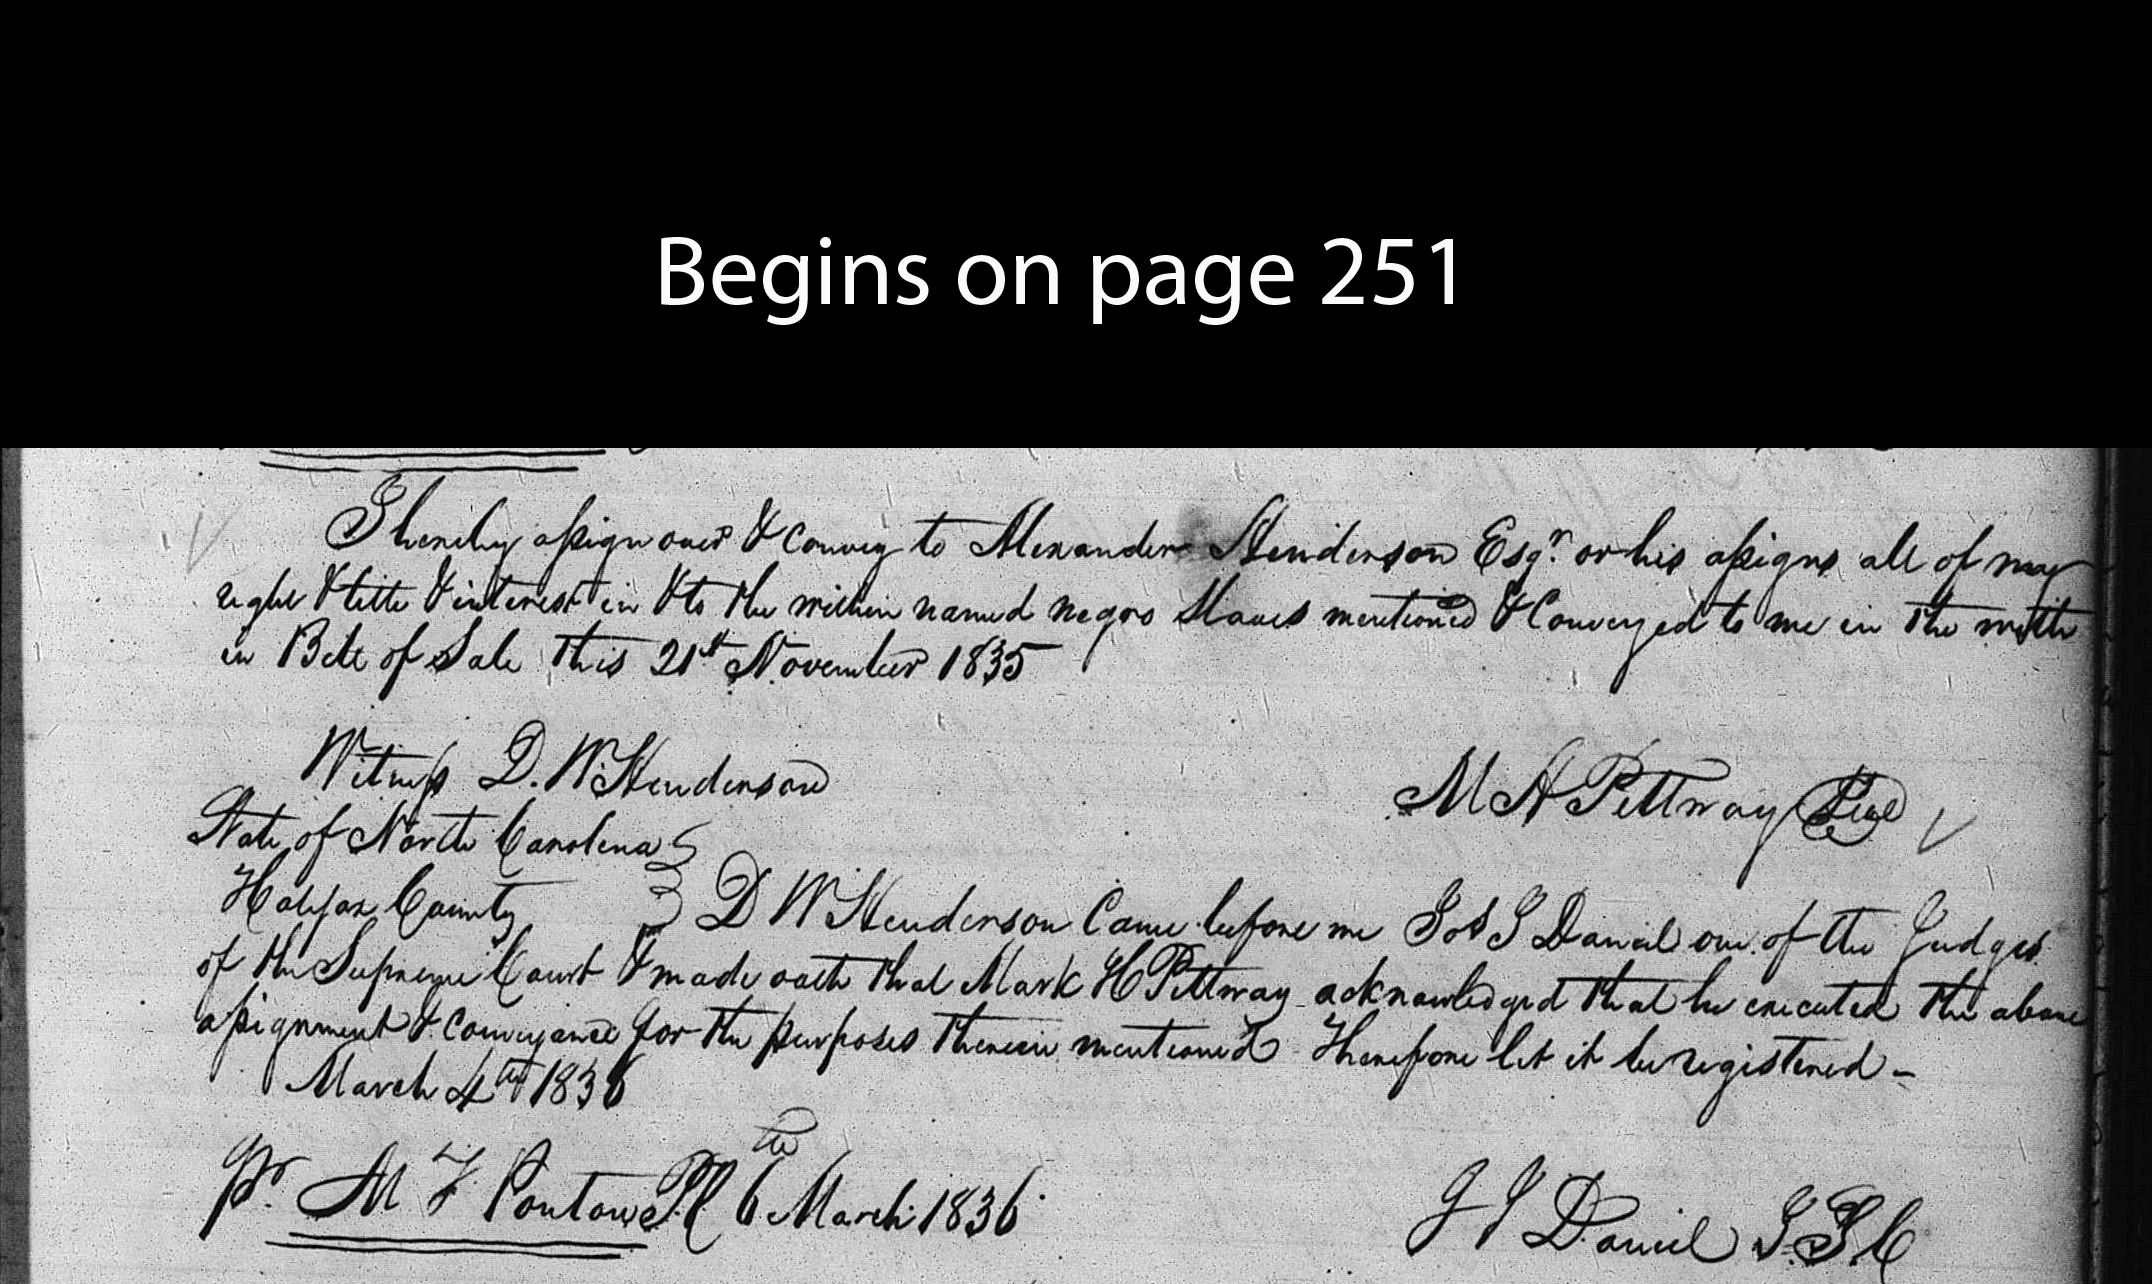 Begins on page 251
I hereby assign over & convey to Alexander Henderson Esqr. or his assigns all of my
right & title & interest in & to the within named negro Slaves mentioned & Conveyed to me in the with
in Bile of Sale this 21st November 1835
Witness D. W. Henderson
M H Pittway Seal
State of North Carolina
Halifax County D W Henderson Came before me Jos J Daniel one of the Judges
of the Supreme Court & made oath that Mark H Pittway acknowledged that he executed the above
assignment & conveyance for the purposes therein mentioned Therefore let it be registered -
March 4th 1836
Pr. M F Ponton P.R 6th March 1836
J J Daniel J.S.C